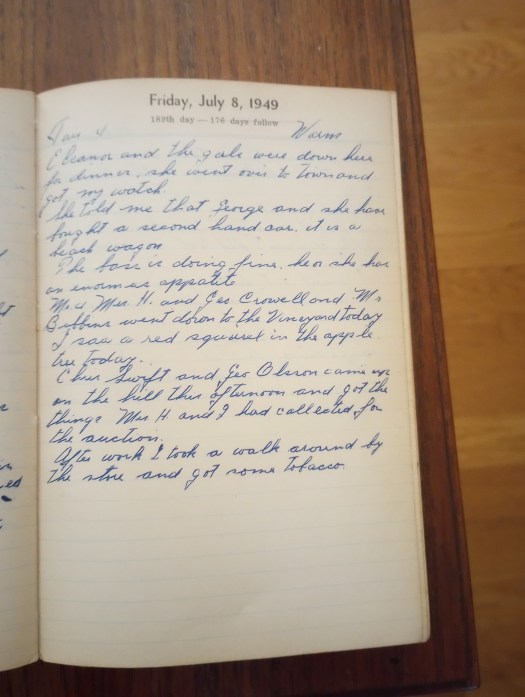 Friday, July 8, 1949
189th day — 176 days follow
Fair Warm
Eleanor and the gals were down here
for dinner. she went over to town and
got my watch.
She told me that George and she have
bought a second hand car. it is a
beach wagon
The is doing fine. he or she has
an enormous appatite
Mr. & Mrs. H. and Geo Crowell and Ms
went down to the Vineyard today
I saw a red squirrel in the apple
tree today.
Ches Swift and Geo Olsson came up
on the hill this afternoon and got the
things Mrs. H and I had collected for
the auction.
After work I took a walk around by
the store and got some tobacco.